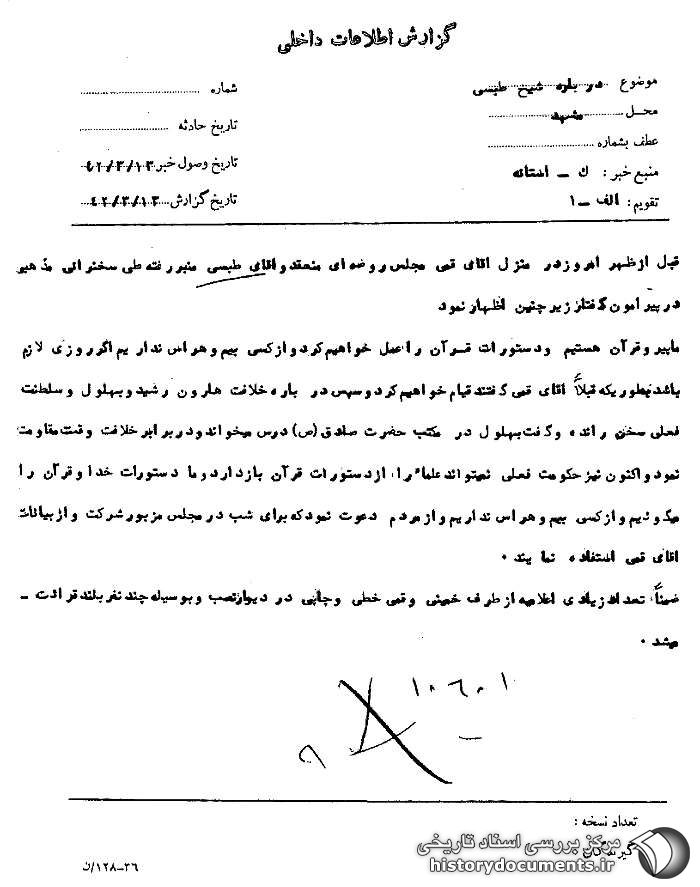 گزارش اطلاعات داخلی
موضوع درباره شیخ طبسی
شماره
محل مشهد
تاریخ حادثه
عطف بشماره
تاریخ وصول خبر ۴۲/۳/۱۳
منبع خبر : ك ـ استانه
تاریخ گزارش ۴۲/۳/۱۳
تقویم : الف ـ ۱
قبل ازظهر امروزدر منزل اقای قمی مجلس روضه ای منعقد واقای طبسی منبر رفته طی سخنرانی مذهبی
درپیرامون گفتار زیر چنین اظهار نمود
ماپیروقرآن هستیم ودستورات قرآن راعمل خواهیم کرد وازکسی بیم وهراس نداریم اگر روزی لازم
باشدبطوریکه قبلاً اقای قمی گفتند قیام خواهیم کرد وسپس در باره خلافت هارون رشید وبهلول وسلطنت
فعلی سخن رانده وگفت بهلول در مکتب حضرت صادق (ص) درس میخواند ودر برابر خلافت وقت مقاومت
نمود واکنون نیز حکومت فعلی نمیتواند علماء را از دستورات قرآن بازدارد وما دستورات خدا وقرآن را
میگوئیم وازکسی بیم وهراس نداریم واز مردم دعوت نمود که برای شب در مجلس مزبور شرکت واز بیانات
اقای قمی استفاده نمایند ۰
ضمناً تعداد زیادی اعلامیه از طرف خمینی وقمی خطی وچاپی در دیوار نصب وبوسیله چند نفر بلند قرائت ـ
میشد ۰
۱۰۶۰۱
تعداد نسخه :
گیرندگان
۱۲۸-۳۶/ن
مرکز بررسی اسناد تاریخی
historydocuments.ir